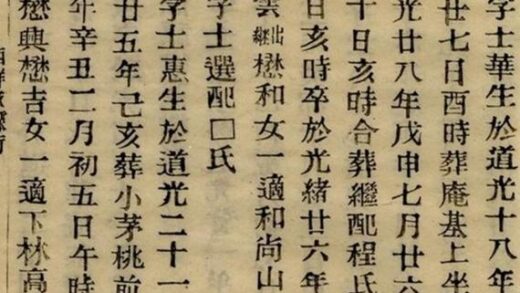 字士華生於道光十八年
廿七日酉時葬庵基上坐
光廿八年戊申七月廿六
十日亥時合葬繼配程氏
日亥時卒於光緒廿六年
雲出繼懋和女一適和尚山
字士選配□氏
字士惠生於道光二十一
廿五年己亥葬小茅桃前
年辛丑二月初五日午時
懋興懋吉女一適下林高